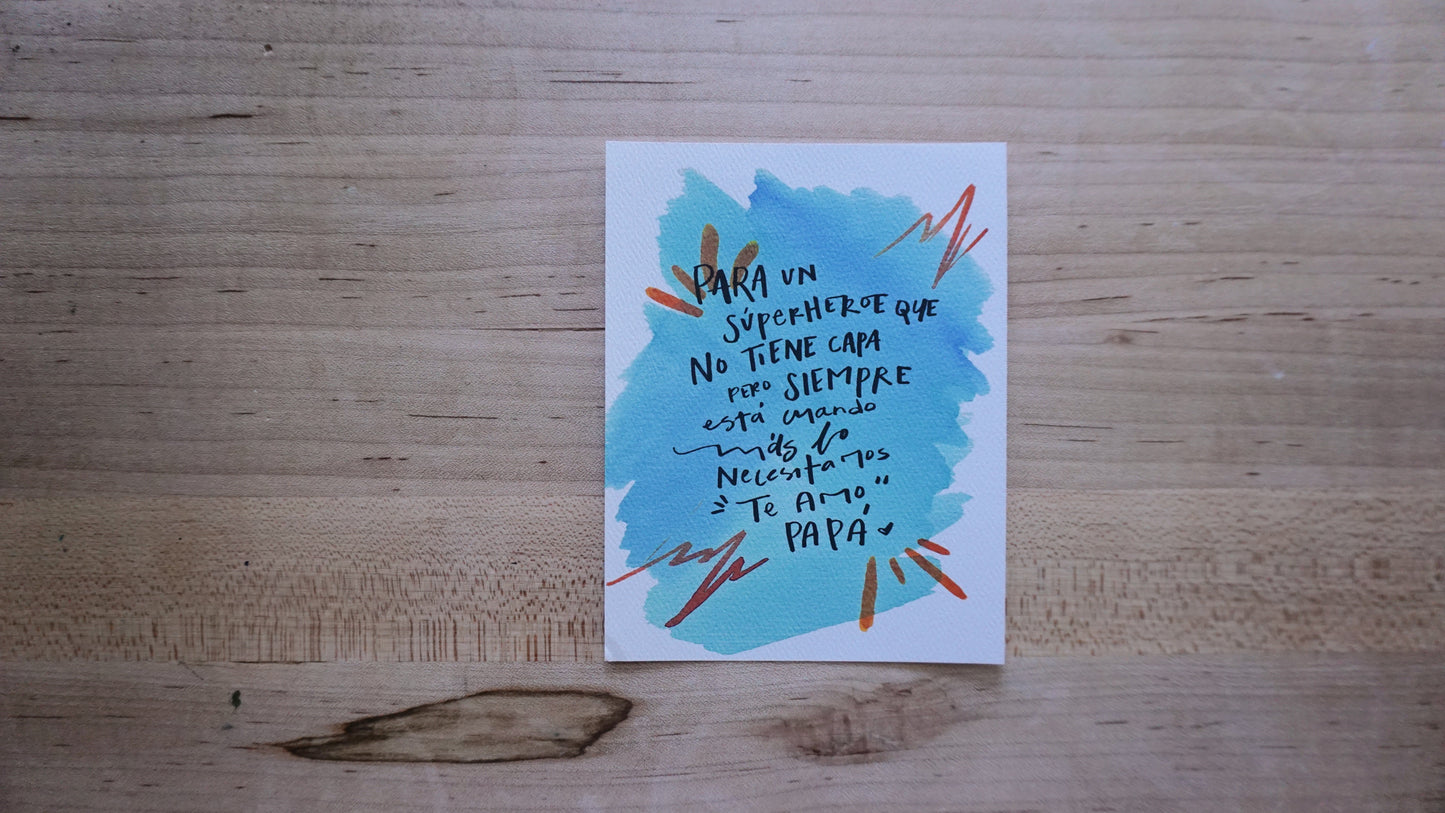 PARA UN
SÚPERHEROE QUE
NO TIENE CAPA
PERO SIEMPRE
está cuando
más lo
Necesitamos
"Te AMO"
PAPÁ